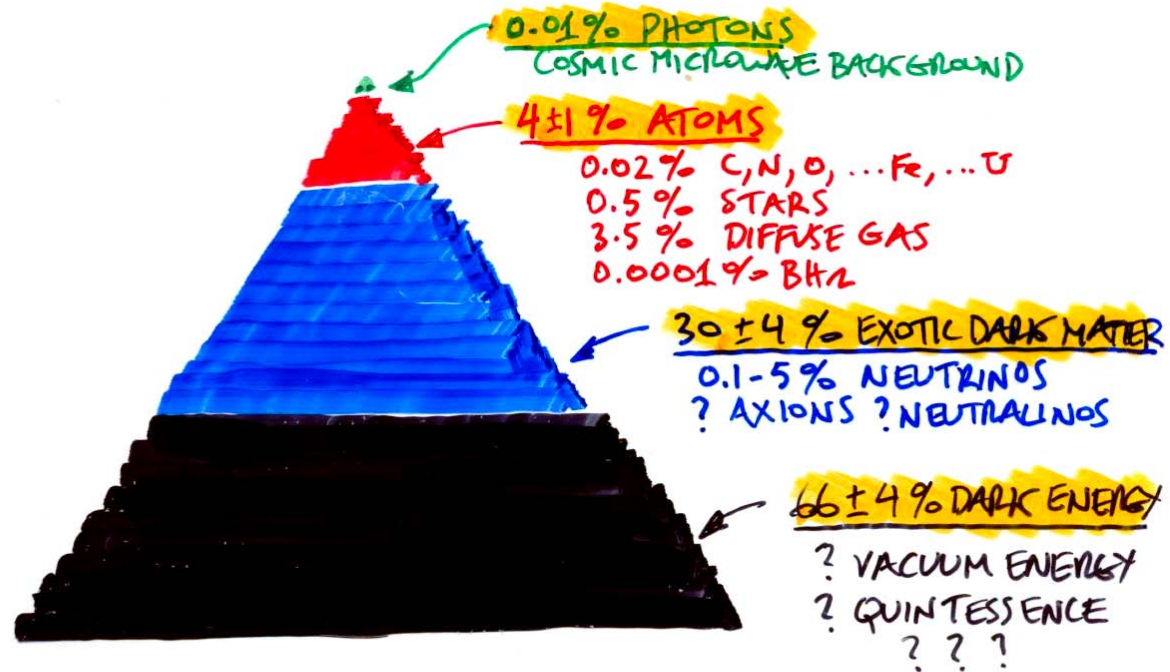 0.01% PHOTONS
COSMIC MICROWAVE BACKGROUND
4±1% ATOMS
0.02% C, N, O, ...Fe, ...U
0.5% STARS
3.5% DIFFUSE GAS
0.0001% BHs
30±4% EXOTIC DARK MATTER
0.1-5% NEUTRINOS
? AXIONS ? NEUTRALINOS
66±4% DARK ENERGY
? VACUUM ENERGY
? QUINTESSENCE
? ? ?